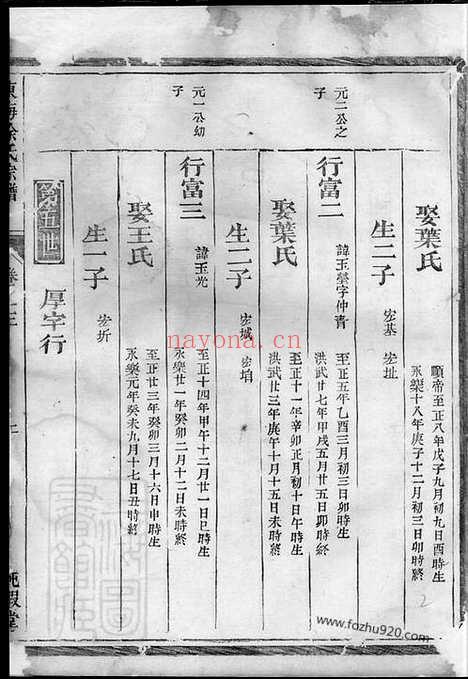 娶葉氏
順帝至正八年戊子九月初九日酉時生
永樂十八年庚子十二月初三日卯時終
生二子
宏基 宏址
元二公之子
行富二
諱玉瑩字仲青
至正五年乙酉三月初三日卯時生
洪武廿七年甲戌五月廿五日卯時終
娶葉氏
至正十一年辛卯正月初十日午時生
洪武廿三年庚午十月十五日未時終
生二子
宏城 宏埍
元一公幼子
行富三
諱玉光
至正十四年甲午十二月廿一日巳時生
永樂廿一年癸卯二月十二日未時終
娶王氏
至正廿三年癸卯三月十六日申時生
永樂元年癸未九月十七日丑時終
生一子
宏圻
第五世
厚字行
東海徐氏宗譜
卷之三
純嘏堂
nayona.cn
www.fozhu920.com
2